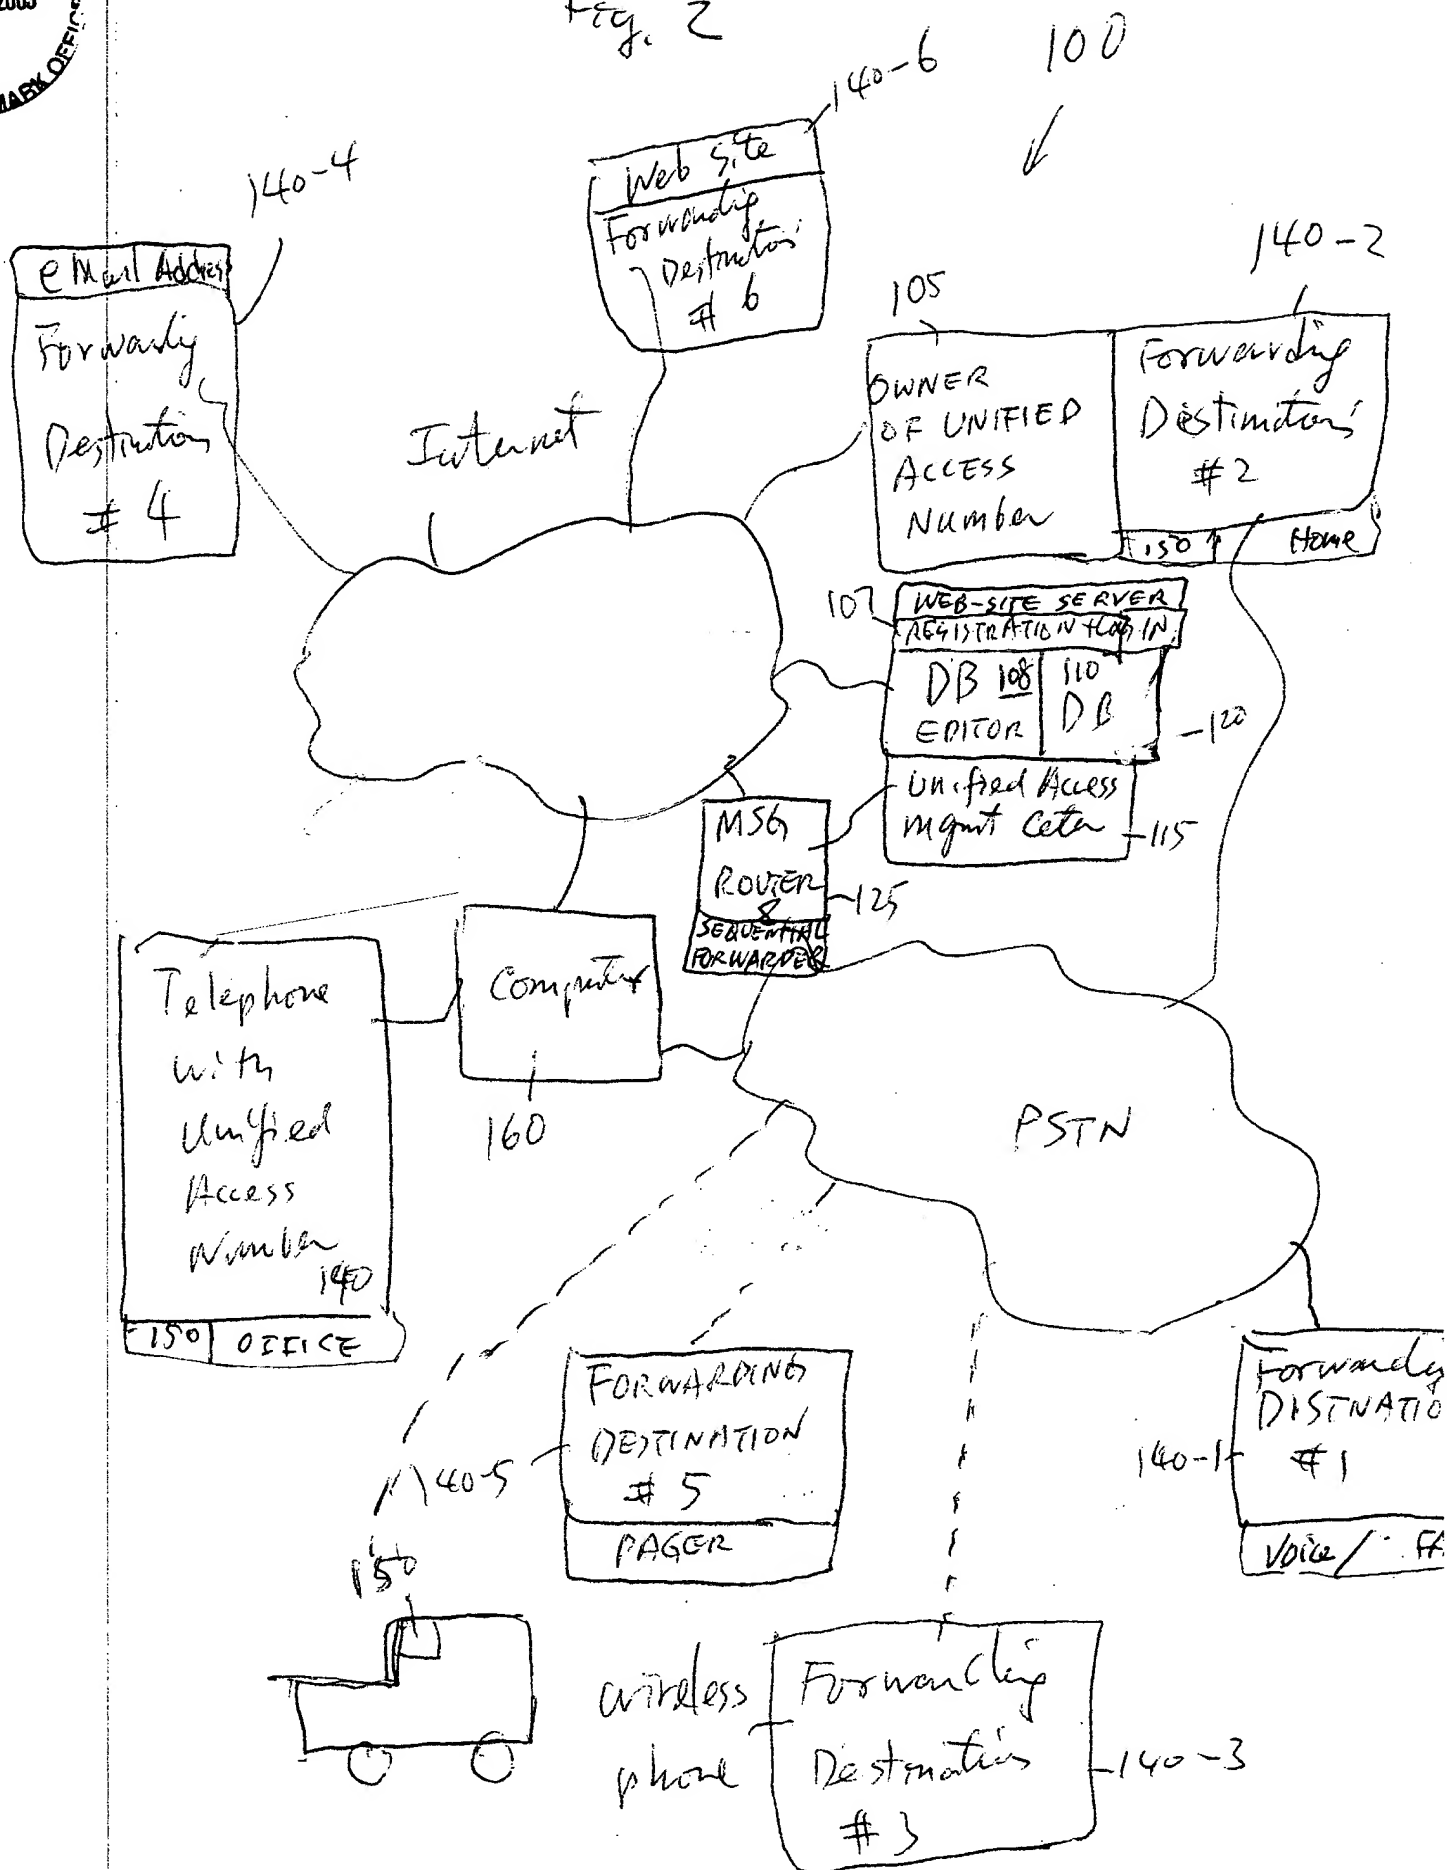 2003
MARK OFFIC
Fig. 2
100
140-6
Web Site
Forwarding
Destination
# 6
140-4
eMail Address
Forwarding
Destination
# 4
Internet
140-2
105
OWNER
OF UNIFIED
ACCESS
Number
Forwarding
Destination
#2
150
Home
107
WEB-SITE SERVER
REGISTRATION + LOG IN
DB 108
EDITOR
110
DB
120
Unified Access
mgmt Center
115
MSG
ROUTER
&
SEQUENTIAL
FORWARDER
125
Telephone
with
Unified
Access
Number
140
150
OFFICE
Computer
160
PSTN
FORWARDING
DESTINATION
# 5
PAGER
140-5
Forwarding
DISTNATIO
#1
140-1
Voice / FA
150
wireless
phone
Forwarding
Destination
#3
140-3